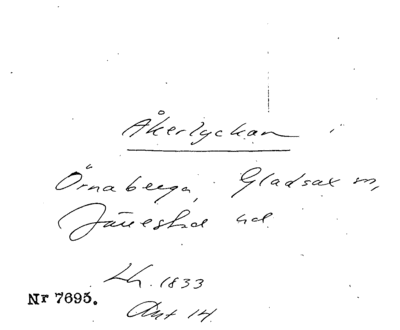 Åkerlyckan i
Örnaberga, Gladsax sn,
Järrestad hd
Lh. 1833
Akt 14
Nr 7695.